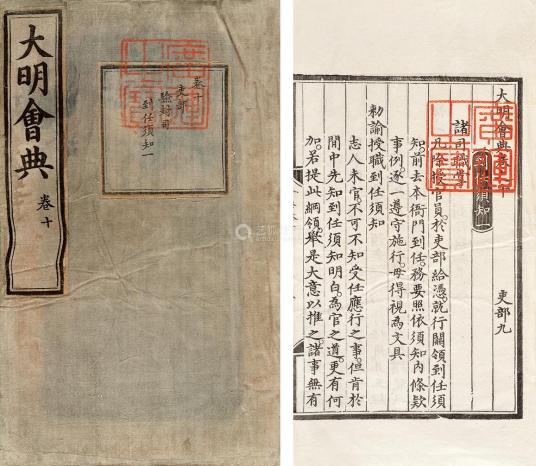 大明會典 卷十
卷十
吏部
驗封司
到任須知一
大明會典卷之十
吏部九
諸司職掌
須知
凡除授官員於吏部給憑就行關領到任須
知前去本衙門到任務要照依須知內條欵
事例逐一遵守施行毋得視為文具
勅諭授職到任須知
志人未官不可不知受任應行之事但肯於
閒中先知到任須知明白為官之道更有何
加若提此綱領舉是大意以推之諸事無有